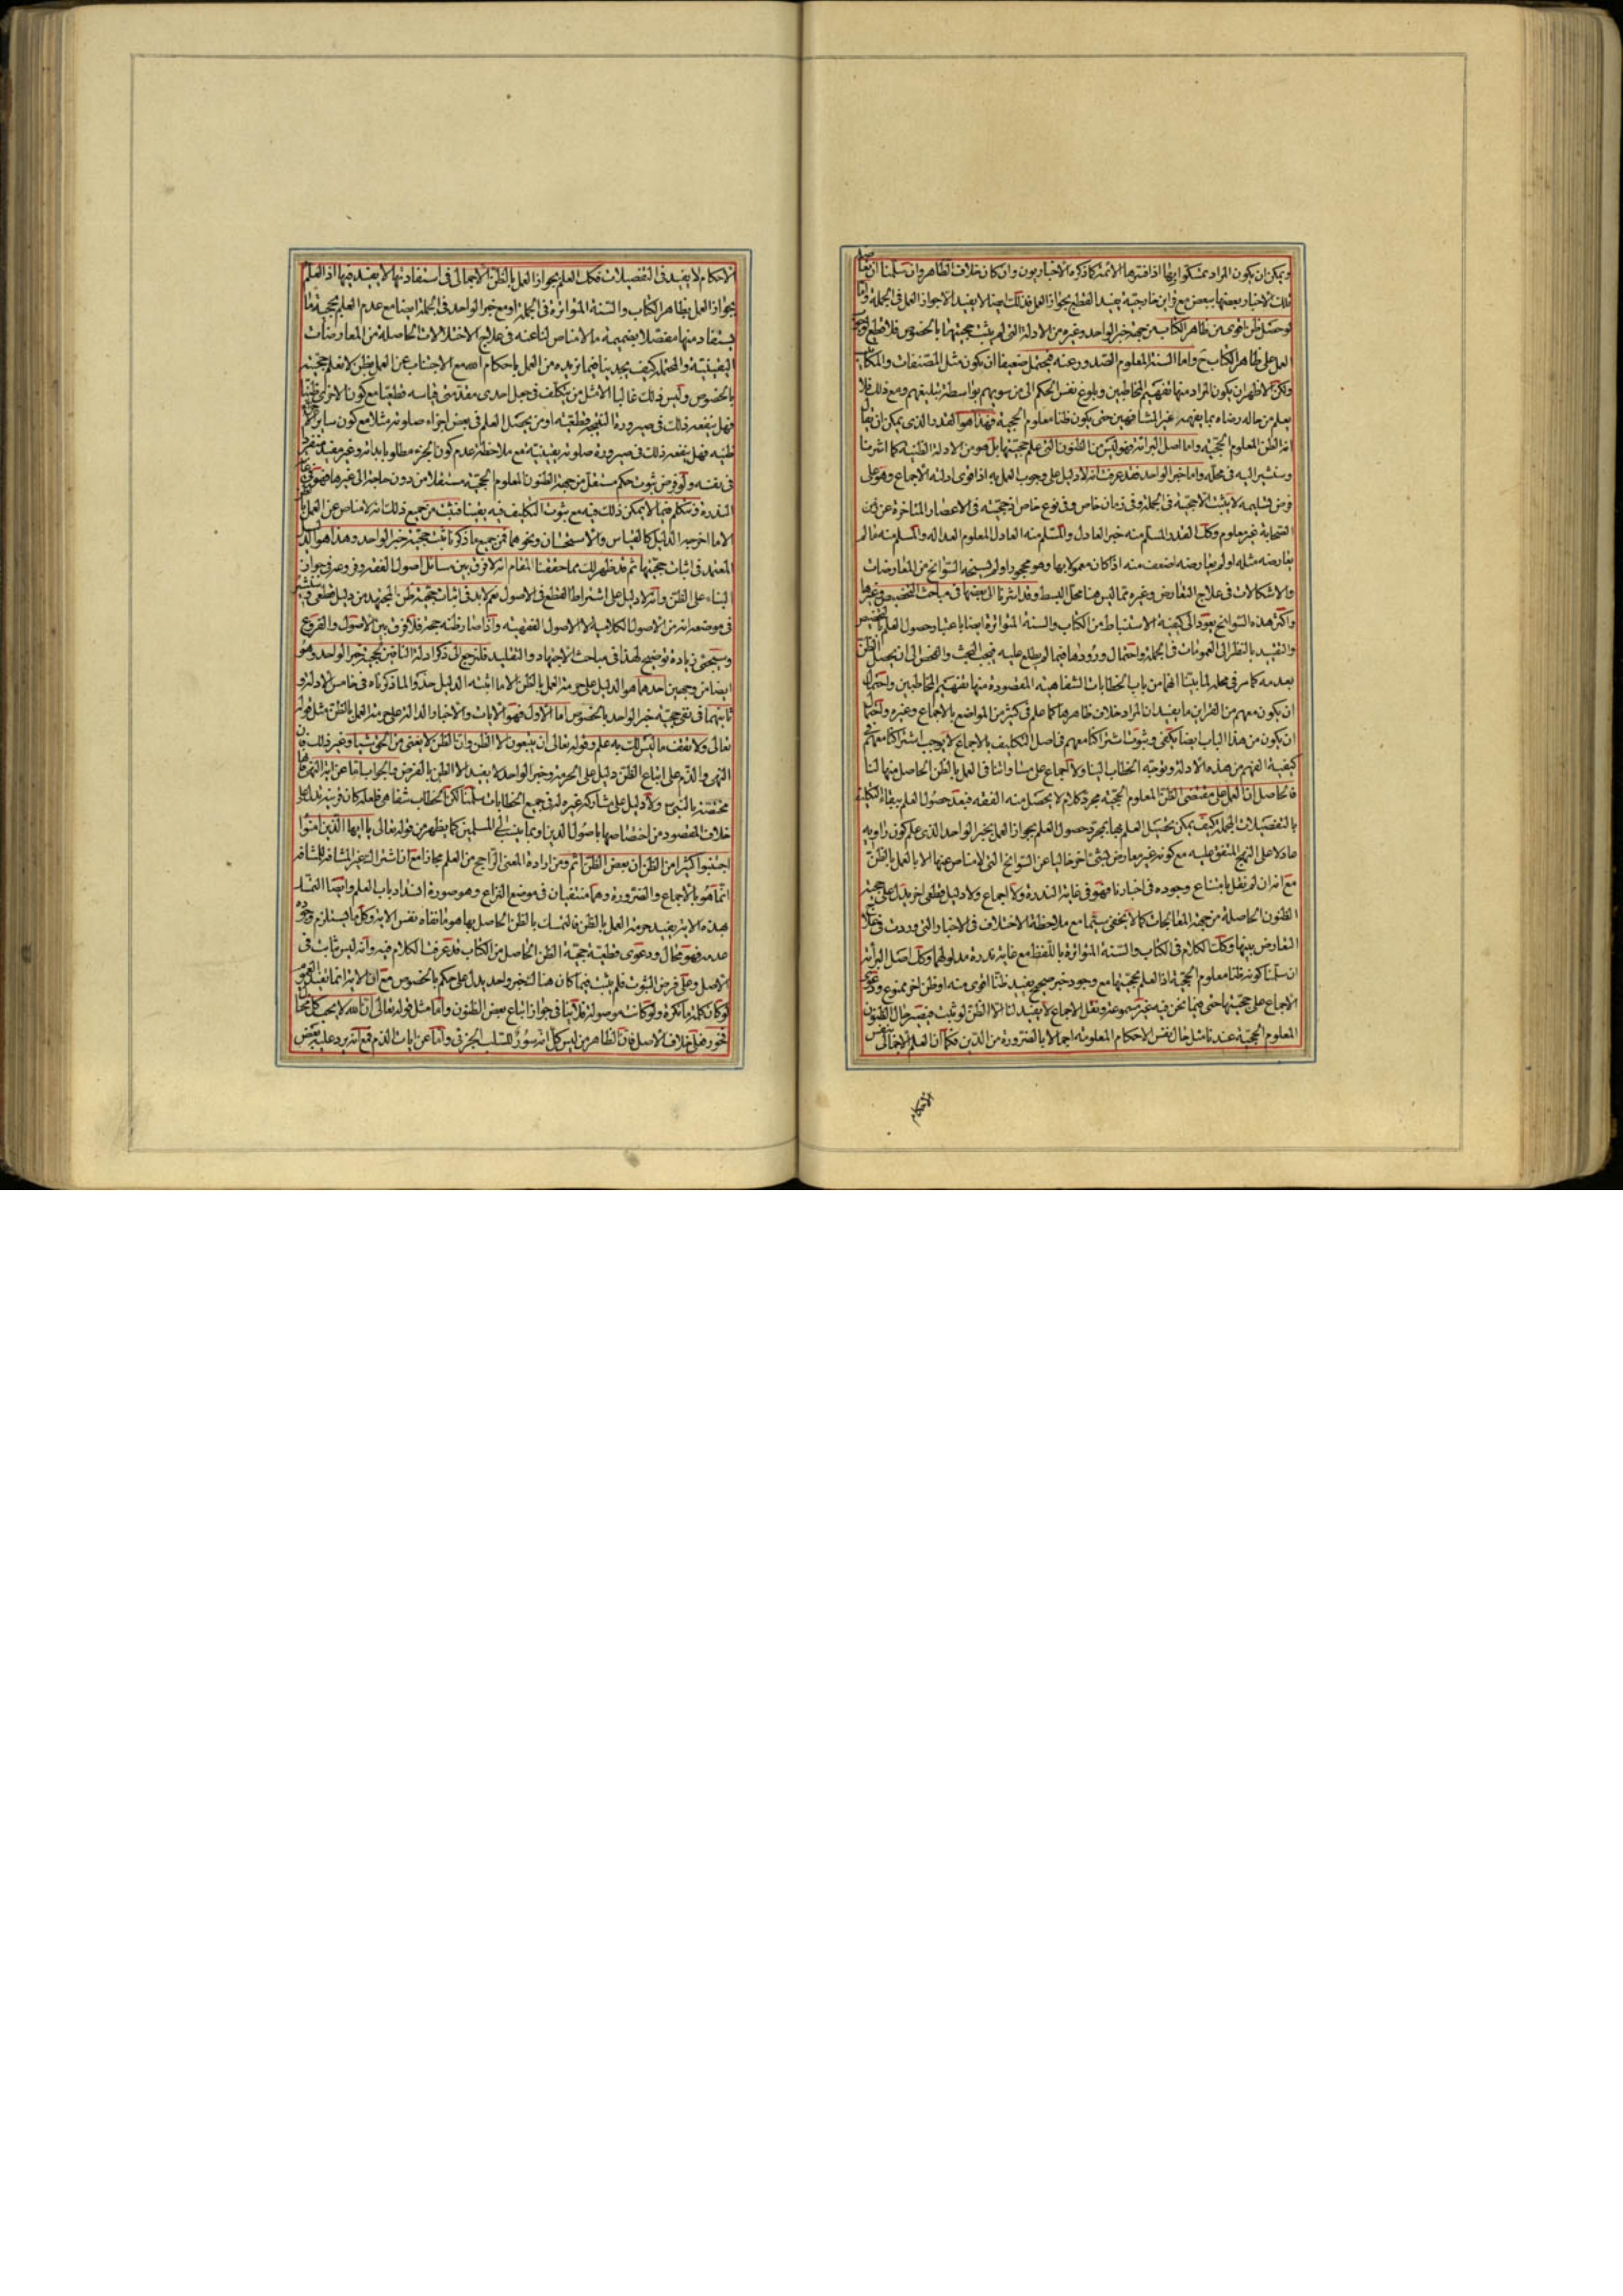 ويمكن ان يكون المراد تمسكوا بها اذا فسرها الائمة كما ذكره الاخباريون وان كان خلاف الظاهر وان سلمنا ان
تلك الاخبار بعضها ببعض مع قراين خارجية يفيد القطع بجواز العمل فذلك ايضا لا يفيد الا جواز العمل في الجملة واما
لو حصل ظن اقوى من ظاهر الكتاب من جهة خبر الواحد وغيره من الادلة التي لم يثبت حجيتها بالخصوص فلا قطع
العمل على ظاهر الكتاب ح واما السنة المعلوم الصدور عنه فيحتمل ضعيفا ان يكون مثل المصنفات والمكاتيب
ولكن الاظهر ان يكون المراد منها تفهيم المخاطبين وبلوغ نفس الحكم الى من سويهم بواسطة تبليغهم ومع ذلك فلا
يعلم من حاله رضاه بما يفهمه غير المشافهين حتى يكون ظنا معلوم الحجية فهذا هو القدر الذي يمكن ان يقال
انه الظن المعلوم الحجية واما اصل البرائة فهو ليس من الظنون التي علم حجيتها بل هو من الادلة الظنية كما اشرنا
وسنشير اليه في محله واما خبر الواحد فقد عرفت انه لا دليل على وجوب العمل به اذ اقوى ادلته الاجماع وهو على
فرض تسليمه لا يثبت الا حجيته في الجملة وفي زمان خاص وفي نوع خاص اذ حجيته في الاعصار المتاخرة عن زمن
الصحابة غير معلوم وكك القدر المسلم منه خبر العادل والمسلم منه العادل المعلوم العدالة والمسلم منه ما لم
يعارضه مثله او لم يعارضه اضعف منه اذا كان معمولا بها وهو مهجورا ولم يسنحه السوانح من المعارضات
والاشكالات في علاج التعارض وغيره مما ليس هنا محل البسط وقد اشرنا الى بعضها في مباحث التخصيص وغيرها
واكثر هذه السوانح يعود الى كيفية الاستنباط من الكتاب والسنة المتواترة ايضا باعتبار حصول العلم بالتخصيص
والتقييد بالنظر الى العمومات في الجملة واحتمال ورودها فيما لم يطلع عليه فيجب البحث والفحص الى ان يحصل الظن
بعدمه كما مر في محله لما بينا انها من باب الخطابات الشفاهية المقصودة منها تفهيم المخاطبين واحتمال
ان يكون معهم من القراين ما يفيد ان المراد خلاف ظاهرها كما علم في كثير من المواضع بالاجماع وغيره واحتمال
ان يكون من هذا الباب ايضا يكفي وثبوت اشتراكنا معهم في اصل التكليف بالاجماع لا يوجب اشتراكنا معهم في
كيفية الفهم من هذه الادلة وتوجه الخطاب الينا ولا اجماع على مساواتنا في العمل بالظن الحاصل منها لنا
فالحاصل ان العمل على مقتضى الظن المعلوم الحجية مجرد كلام لا يحصل منه الفقه فبعد حصول العلم ببقاء التكليف
بالتفصيلات المجملة كيف يمكن تحصيل العلم بها بمجرد حصول العلم بجواز العمل بخبر الواحد الذي علم كون راويه
عادلا على النهج المتفق عليه مع كونه غير معارض بشئ اخر خاليا عن السوانح التي لا مناص عنها الا بالعمل بالظن
مع انه ان لم نقل بامتناع وجوده في اخبارنا فهو في غاية الندرة ولا اجماع ولا دليل قطعي اخر يدل على حجية
الظنون الحاصلة من جهة المعالجات كما لا يخفى سيما مع ملاحظة الاختلاف في الاخبار التي وردت في علاج
التعارض بينها وكك الكلام في الكتاب والسنة المتواترة باللفظ مع غاية ندرة مدلولها وكك اصل البرائة
ان سلمنا كونه ظنا معلوم الحجية اذ العلم بحجيتها مع وجود خبر صحيح يفيد ظنا اقوى منه او ظن اخر ممنوع ودعوى
الاجماع على حجيتها حتى فيما نحن فيه غير مسموعة ونقل الاجماع لا يفيد لنا الا الظن لو ثبت فيصير حال الظنون
المعلوم الحجية عند تامل حال نفس الاحكام المعلومة اجمالا بالضرورة من الدين فكما ان العلم الاجمالي بنفس
الاحكام
الاحكام لا يفيد في التفصيلات فكك العلم بجواز العمل بالظن الاجمالي في استفادتها لا يفيد فيها اذ العلم
بجواز العمل بظاهر الكتاب والسنة المتواترة في الجملة او مع خبر الواحد في الجملة ايضا مع عدم العلم بحجية ما
يستفاد منها مفصلا بضميمة ما لا مناص لنا عنه في علاج الاختلالات الحاصلة من المعارضات
اليقينية والمحتملة كيف يجدينا فيما نريده من العمل باحكام الله مع الاجتناب عن العمل بظن لا نعلم حجيته
بالخصوص وليس ذلك غالبا الا مثل من يتكلف في جعل احدى مقدمتي قياسه قطعيا مع كون الاخرى ظنيا
فهل ينفعه ذلك في صيرورة النتيجة قطعية او من يحصل العلم في بعض اجزاء صلوته مثلا مع كون ساير
ظنيه فهل ينفعه ذلك في صيرورة صلوته يقينية مع ملاحظة عدم كون الجزء مطلوبا بذاته وغير مفيد منفردا
في نفسه ولو فرض ثبوت حكم مستقل من جهة الظنون المعلوم الحجية مستقلا من دون حاجة الى غيرها فهو في غاية
الندرة فنتكلم فيما لا يمكن ذلك فيه مع ثبوت التكليف فيه يقينا فثبت من جميع ذلك انه لا مناص عن العمل بالظن
الا ما اخرجه الدليل كالقياس والاستحسان ونحوهما فمن جميع ما ذكرنا ثبت حجية خبر الواحد وهذا هو الدليل
المعتمد في اثبات حجيتها ثم قد ظهر لك مما حققنا المقام انه لا فرق بين مسائل اصول الفقه وفروعه في جواز
البناء على الظن وانه لا دليل على اشتراط القطع في الاصول نعم لا بد في اثبات حجية ظن المجتهد من دليل قطعي
في موضعه انه من الاصول الكلامية لا الاصول الفقهية واذا صار ظنه حجة فلا فرق بين الاصول والفروع
وسيجئ زيادة توضيح لهذا في مباحث الاجتهاد والتقليد فلنرجع الى ذكر ادلة النافين لحجية خبر الواحد وهو
ايضا من وجهين احدهما هو الدليل على حرمة العمل بالظن الا ما اثبته الدليل حذو الما ذكرناه في خامس الادلة و
ثانيهما في نفي حجية خبر الواحد بالخصوص اما الاول فهو الايات والاخبار الدالة على حرمة العمل بالظن مثل قوله
تعالى ولا تقف ما ليس لك به علم وقوله تعالى ان يتبعون الا الظن وان الظن لا يغني من الحق شيئا وغير ذلك فان
النهي والذم على اتباع الظن دليل على الحرمة وخبر الواحد لا يفيد الا الظن بالفرض والجواب اما عن اية النهي فانها
مختصة بالنبي ص ولا دليل على مشاركة غيره له في جميع الخطابات سلمنا لكن الخطاب شفاهي فلعله كان قرينة تدل على
خلاف المقصود من اختصاصها باصول الدين او بما ينسب الى المسلمين كما يظهر من قوله تعالى يا ايها الذين امنوا
اجتنبوا كثيرا من الظن ان بعض الظن اثم ومن ارادة المعنى الراجح من العلم مجازا مع ان اشتراك غير المشافه للمشافه
انما هو بالاجماع والضرورة وهما منتفيان في موضع النزاع وهو صورة انسداد باب العلم وايضا التمسك
بهذه الاية يفيد حرمة العمل بالظن فالتمسك بالظن الحاصل بها هو ما نفاه نفس الاية وكل ما يستلزم وجوده
عدمه فهو محال ودعوى قطعية حجية الظن الحاصل من الكتاب قد عرفت الكلام فيه وانه ليس بثابت في
الاصل وعلى فرض الثبوت فلم يثبت فيما كان هناك خبر واحد يدل على حكم بالخصوص مع ان الاية انما تفيد العموم
لو كان كلمة ما نكرة ولو كانت موصولة فلا ينافي جواز اتباع بعض الظنون واما مثل قوله تعالى ان الله لا يحب كل مختال
فخور فعلى خلاف الاصل فان الظاهر من ليس كل انه سور للسلب الجزئي واما عن ايات الذم فمع انه يرد عليه بعض